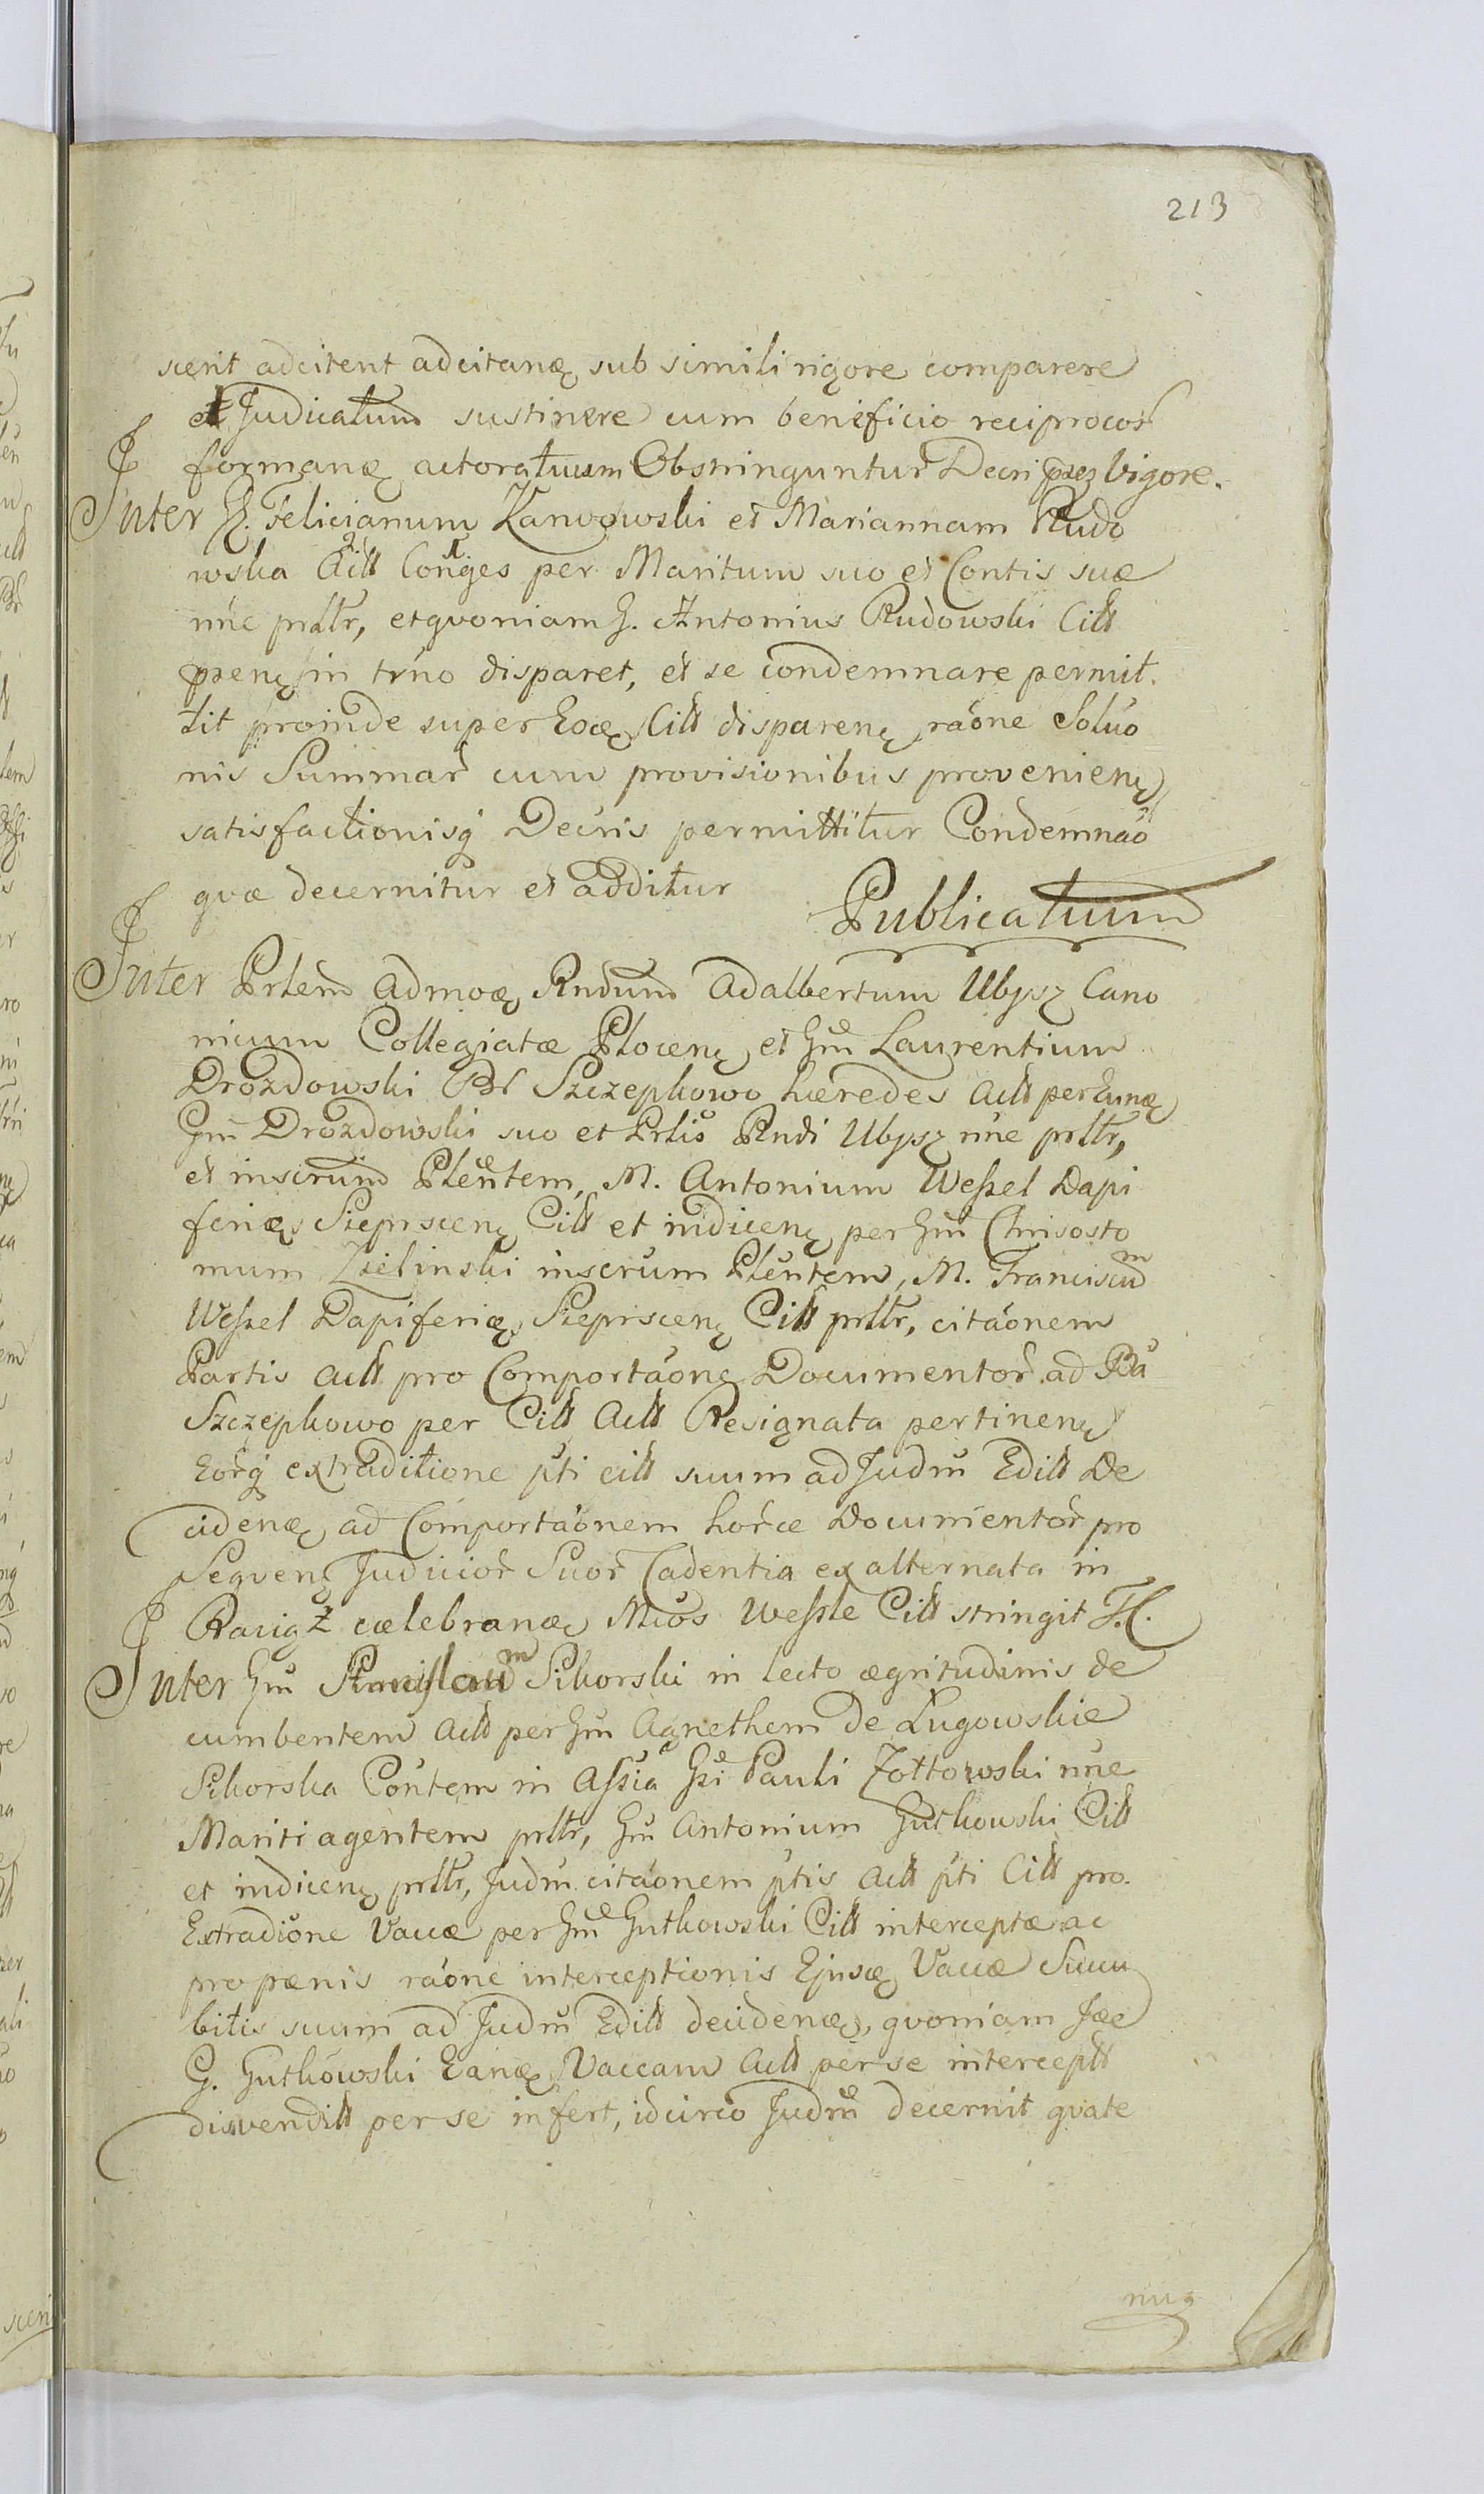 213
scerit adcitent adcitanę sub simili rigore comparere
et Judicatum sustinere cum beneficio reciprocor
formanę actoratuum Obstringuntur Decri pñtz Vigore.
Inter G. Felicianum Karwowski et Mariannam Rudo
wska Actt Conges per Maritum suo et Contis suæ
nńc prłłr, etqvoniam G. Antonius Rudowski Citt
prenę in trńo disparet, et se condemnare permit.
tit proinde super Eoę Citt disparenę ráone Solúo
nis Summar cum provisionibus provenienę
satisfactionisq Decris permittitur Condemnáó
qvæ decernitur et additur
Publicatum
Inter Prtem Admoę Rndum Adalbertum Ubysz Cano
nicum Collegiatæ Plocenę et Gm Laurentium
Drozdowski Bł Szczepkowo hæredes Actt per Eunę
Gm Drozdowski suo et Prtis Rndi Ubysz nńc prłłr,
et inscrum Plentem, M. Antonium Weſsel Dapi
feridę Sieprscenę Citt et indicenę per Gm Chrisosto
mum Zielinski inscrum Plentem, M. Franciscum
Weſsel Dapiferię Sieprscenę Citt prłłr, citáonem
Partis Actt pro Comportáone Documentor ad Bá
Szczepkowo per Citt Actt Resignata pertinenę
Eorq extraditione pti citt suum ad Judm Editt De
cidenę ad Comportáonem horce Documentor pro
Seqvenę Judicior Suor Cadentia ex alternata in
Raciąż cælebranę Mcos Weſsle Citt stringit T. C.
Inter Gm Stanislaum Sikorski in lecto ægritudinis de
cumbentem Actt per Gm Agnethem de Lugowskie
Sikorska Contem in Aſsia Gsi Pauli Zołtowski nńc
Mariti agentem prłłr, Gm Antonium Gutkowski Citt
et indicenę prłłr, Judm citáonem ptis Actt pti Citt pro.
Extradióne Vaccæ per Gm Gutkowski Citt interceptæ ac
pro pænis ráone interceptionis Ejusę Vaccæ Succu
bitis suum ad Judm Editt decidenę, qvoniam Jæe
G. Gutkowski Eanę Vaccam Actt per se interceptt
disvenditt per se infert, idcirco Judm decernit qvate
nuq